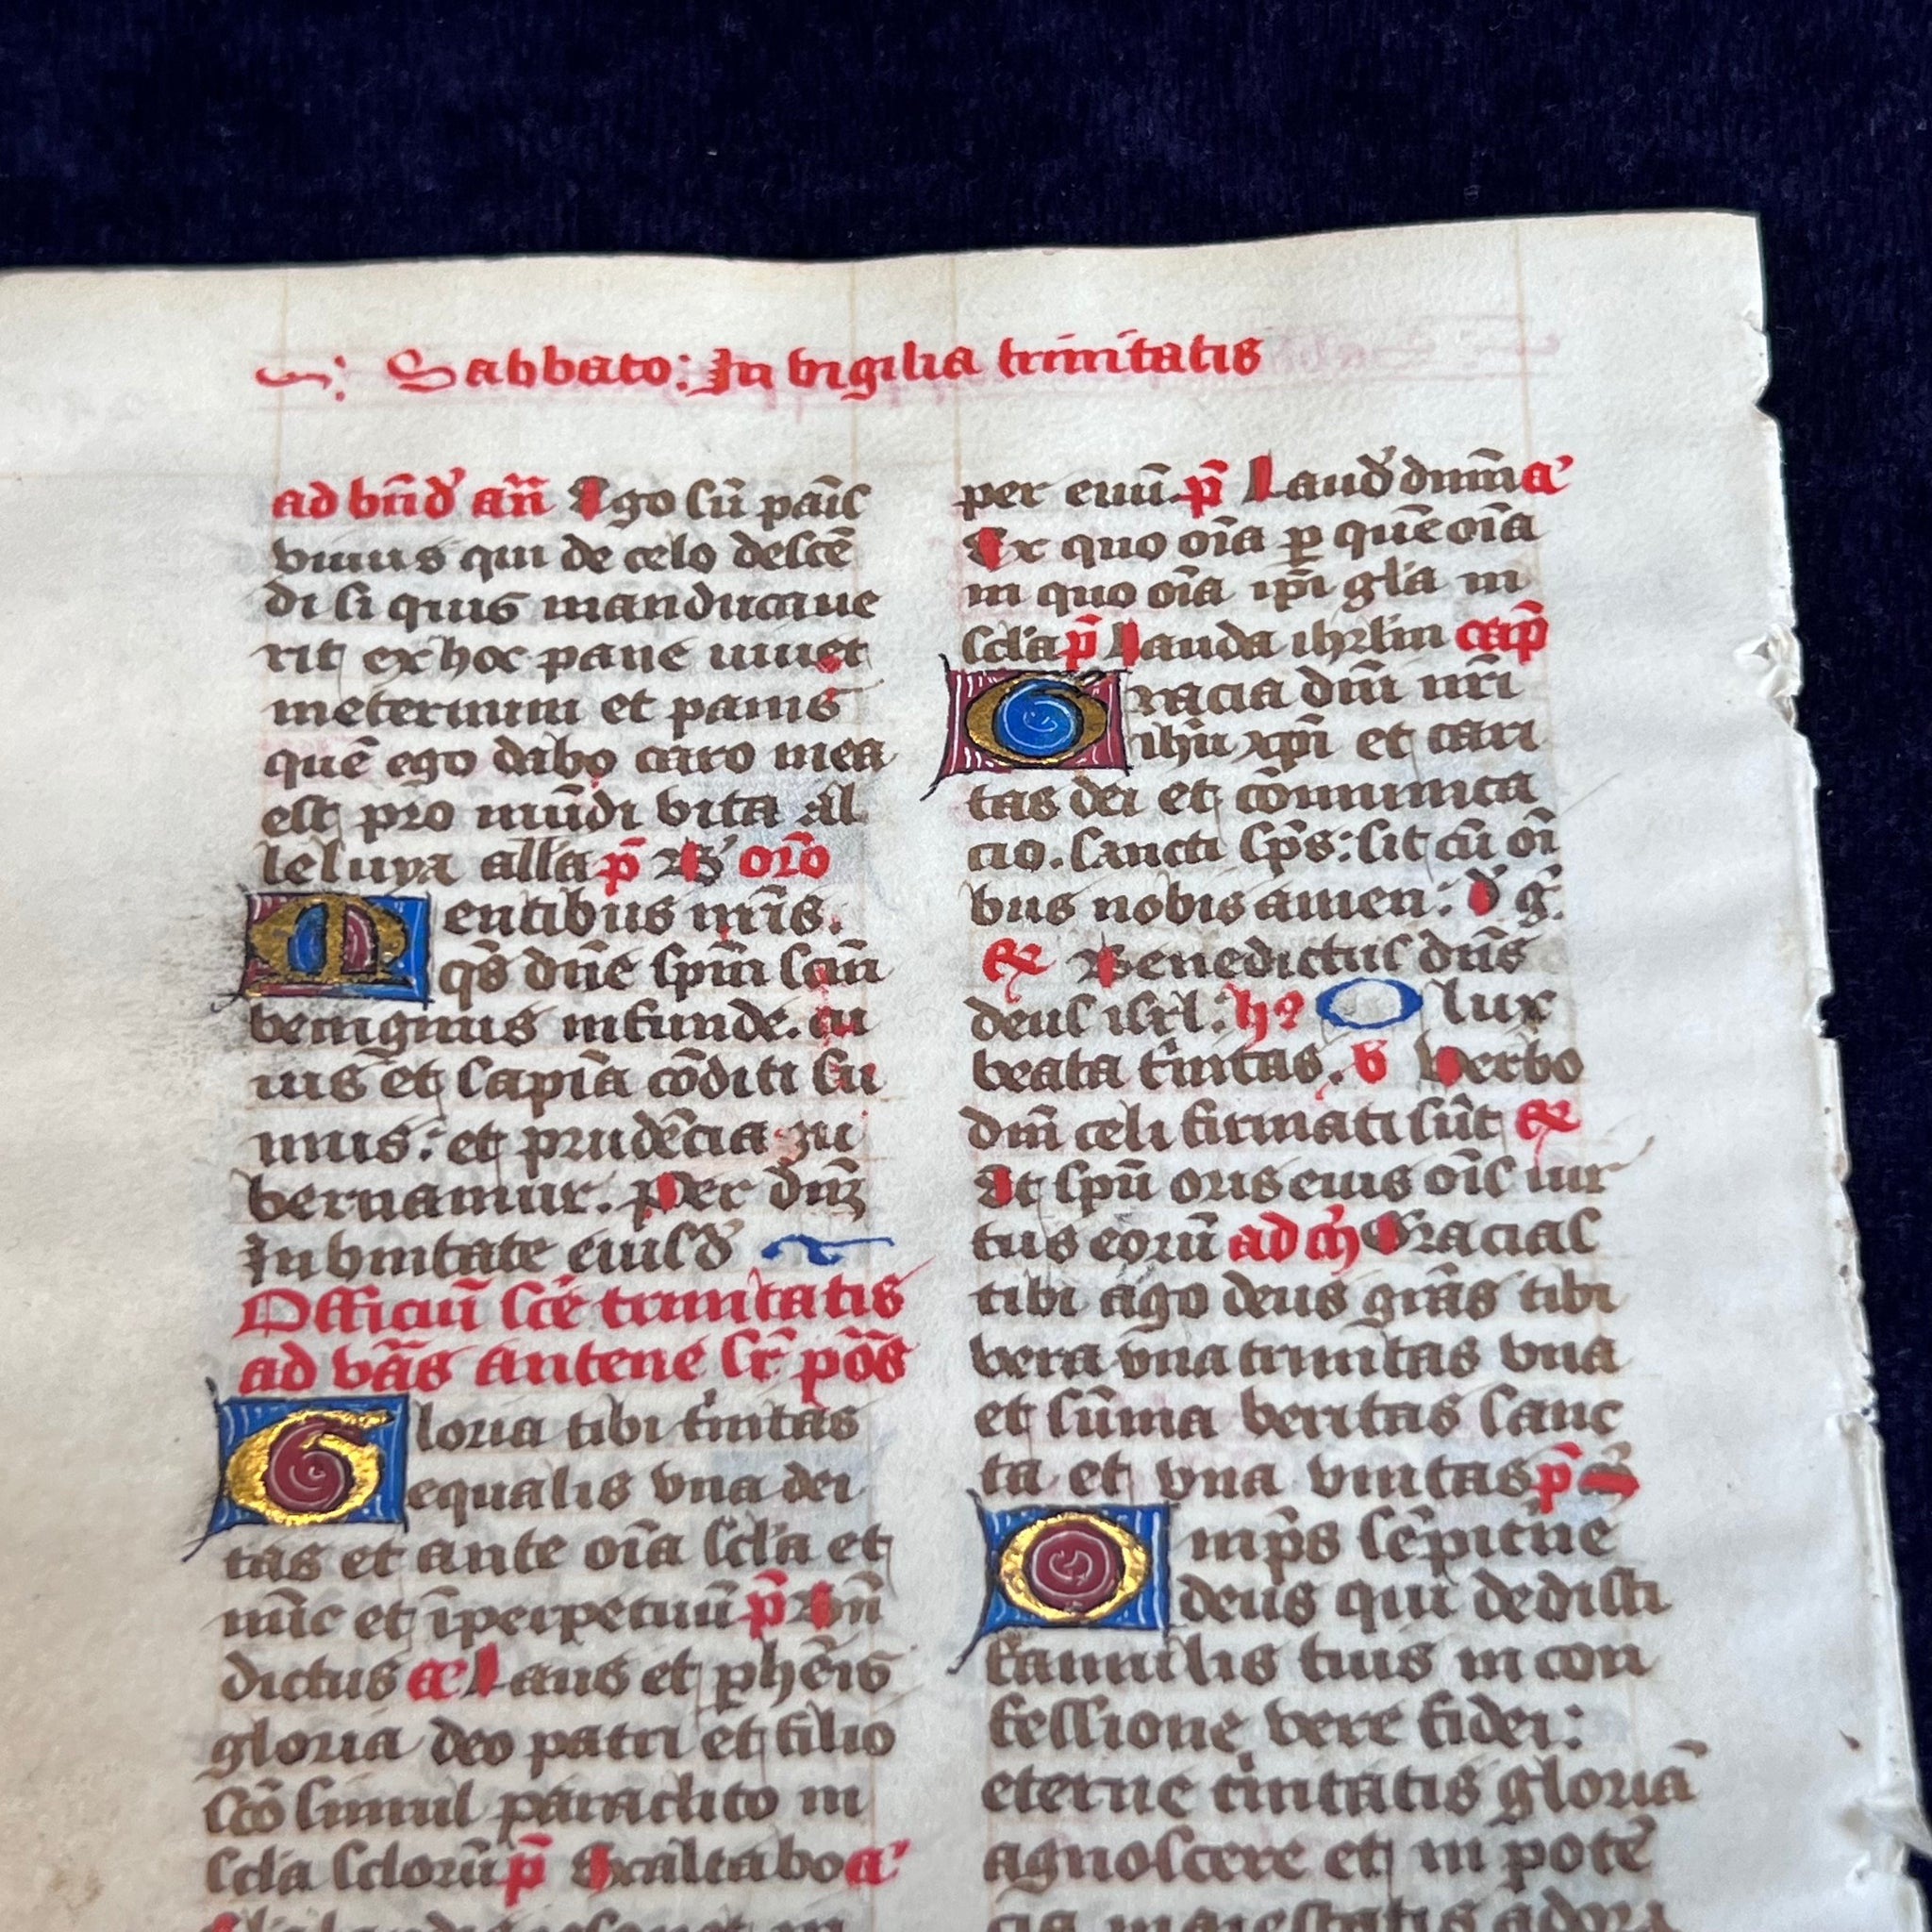 Sabbato: In vigilia trinitatis
ad bn̄d' an̄ Ego sū pāis
viuus qui de celo descē
di si quis manducaue
rit ex hoc pane uiuet
ineternum et panis
quē ego dabo caro mea
est pro mūdi vita al
leluya all'a p̄ B' orō
Mentibus nr̄is.
qs̄ dn̄e spm̄ scm̄
benignus infunde. cu
ius et sapīa cōditi su
mus: et prudēcia gu
bernamur. Per dm̄
In vnitate eiusd'
Officiū scē trinitatis
ad vās antene sr̄ pōs
Gloria tibi t'nitas
equalis vna dei
tas et ante oīa scl'a et
nūc et īperpetuū p̄ Bn̄
dictus a' Laus et phēis
gloria deo patri et filio
scō simul paraclito in
scl'a scl'orū p̄ Exaltabo a'
per euū p̄ Laud' dnm̄ a'
Ex quo oīa p quē oīa
in quo oīa ip̄i gl'a in
scl'a p̄ Lauda ihrl'm cap̄
Gracia dm̄ nr̄i
ihū xp̄i et cari
tas dei et cōmunica
cio. sancti sp̄s: sit cū oī
bus nobis amen: D' g.
Benedictus dn̄s
deus isrl: h9 O lux
beata t'nitas. v Verbo
dm̄ celi firmati sūt
Et spū oris eius oīs uir
tus eorū ad m̄ Gracias
tibi ago deus grās tibi
vera vna trinitas vna
et sūma veritas sanc
ta et vna vnitas p̄
Omp̄s sēpit'ne
deus qui dedisti
famulis tuis in con
fessione vere fidei:
eterne t'nitatis gloriā
agnoscere et in potē
cia maiestatis adora